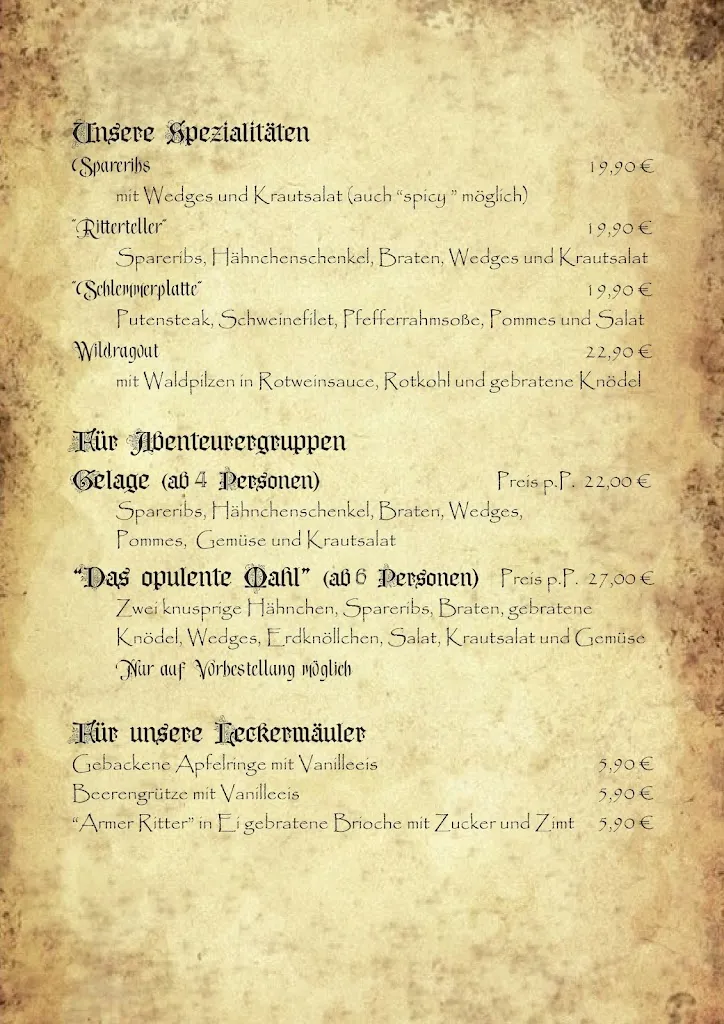 Unsere Spezialitäten
Spareribs 19,90 €
mit Wedges und Krautsalat (auch "spicy " möglich)
"Ritterteller" 19,90 €
Spareribs, Hähnchenschenkel, Braten, Wedges und Krautsalat
"Schlemmerplatte" 19,90 €
Putensteak, Schweinefilet, Pfefferrahmsoße, Pommes und Salat
Wildragout 22,90 €
mit Waldpilzen in Rotweinsauce, Rotkohl und gebratene Knödel
Für Abenteurergruppen
Gelage (ab 4 Personen) Preis p.P. 22,00 €
Spareribs, Hähnchenschenkel, Braten, Wedges,
Pommes, Gemüse und Krautsalat
"Das opulente Mahl" (ab 6 Personen) Preis p.P. 27,00 €
Zwei knusprige Hähnchen, Spareribs, Braten, gebratene
Knödel, Wedges, Erdknöllchen, Salat, Krautsalat und Gemüse
Nur auf Vorbestellung möglich
Für unsere Leckermäuler
Gebackene Apfelringe mit Vanilleeis 5,90 €
Beerengrütze mit Vanilleeis 5,90 €
"Armer Ritter" in Ei gebratene Brioche mit Zucker und Zimt 5,90 €